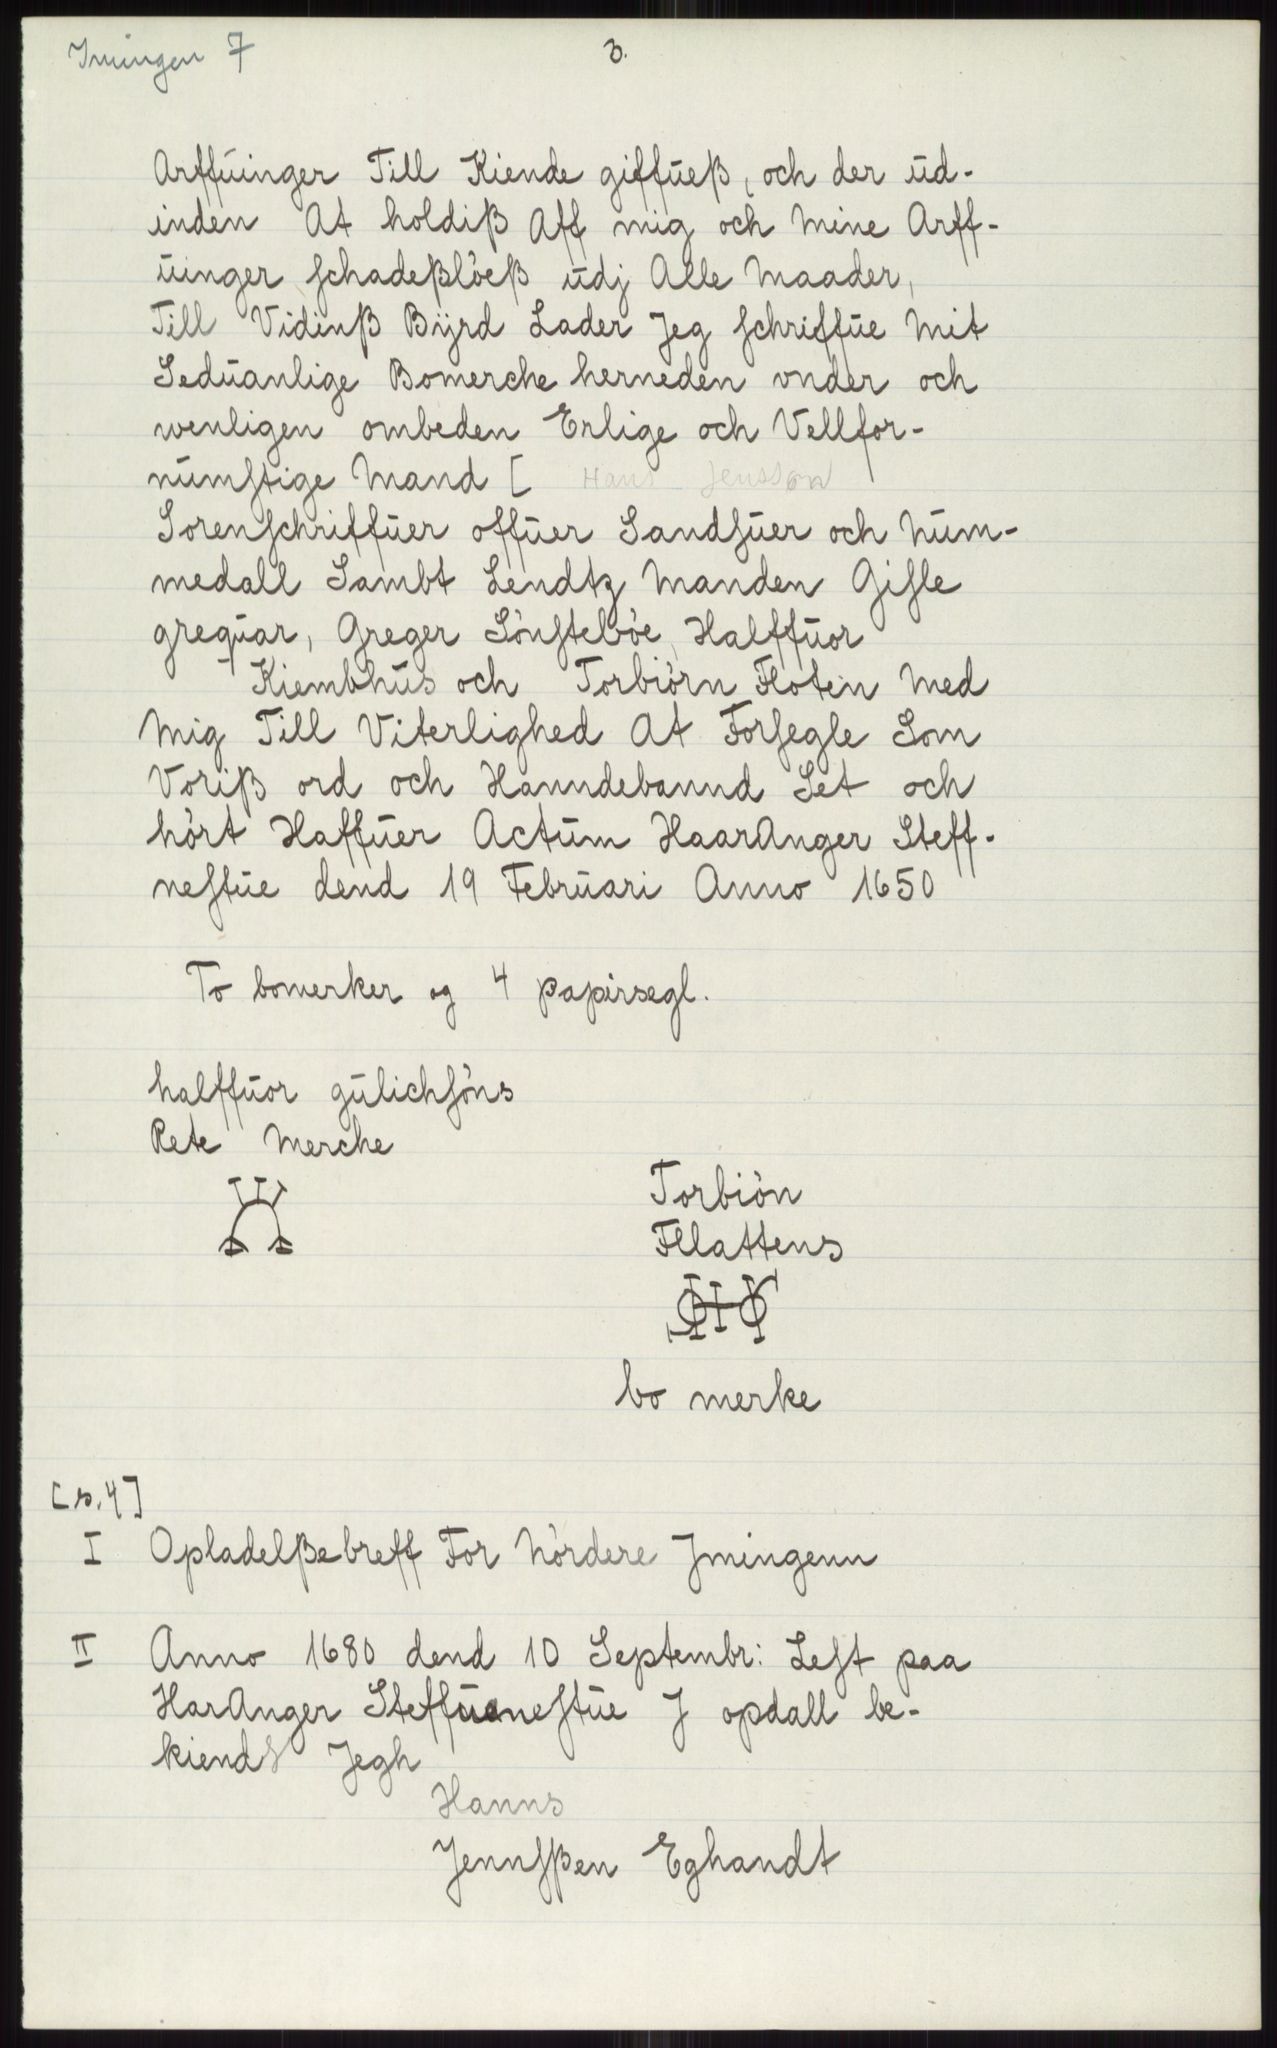 Imingen 7
3.
Arffūinger Till Kiende giffūeß, och der ūd-
inden At holdiß Aff mig och Mine Arff-
ūinger schadeßlöeß ūdj Alle Maader,
Till Vidinß Bÿrd Lader Jeg schriffūe Mit
Sedūanlige Bomerche herneden vnder och
wenligen ombeden Erlige och Vellfor-
nūmstige Mand [ Hans Jensson
Sorenschriffūer offūer Sandsūer och Nūm-
medall Sambt Lendtz Manden Gisle
greqūar, Greger Sönsteböe, Halffūor
Kiembhūs och Torbiörn Floten Med
Mig Till Viterlighed At Forsegle Som
Voriß ord och Hanndebannd Set och
hört Haffūer Actūm HaarAnger Steff-
nestūe dend 19 Febrūari Anno 1650
To bomerker og 4 papirsegl.
halffūor gūlichsöns
Rete Merche
Torbiön
Fllattens
bo merke
[s.4]
I Opladelßebreff For Nördere Jmingenn
II Anno 1680 dend 10 Septembr: Lest paa
HarAnger Steffūenestūe J opdall be-
kiends Jegh
Hanns
Jennsßen Eghandt